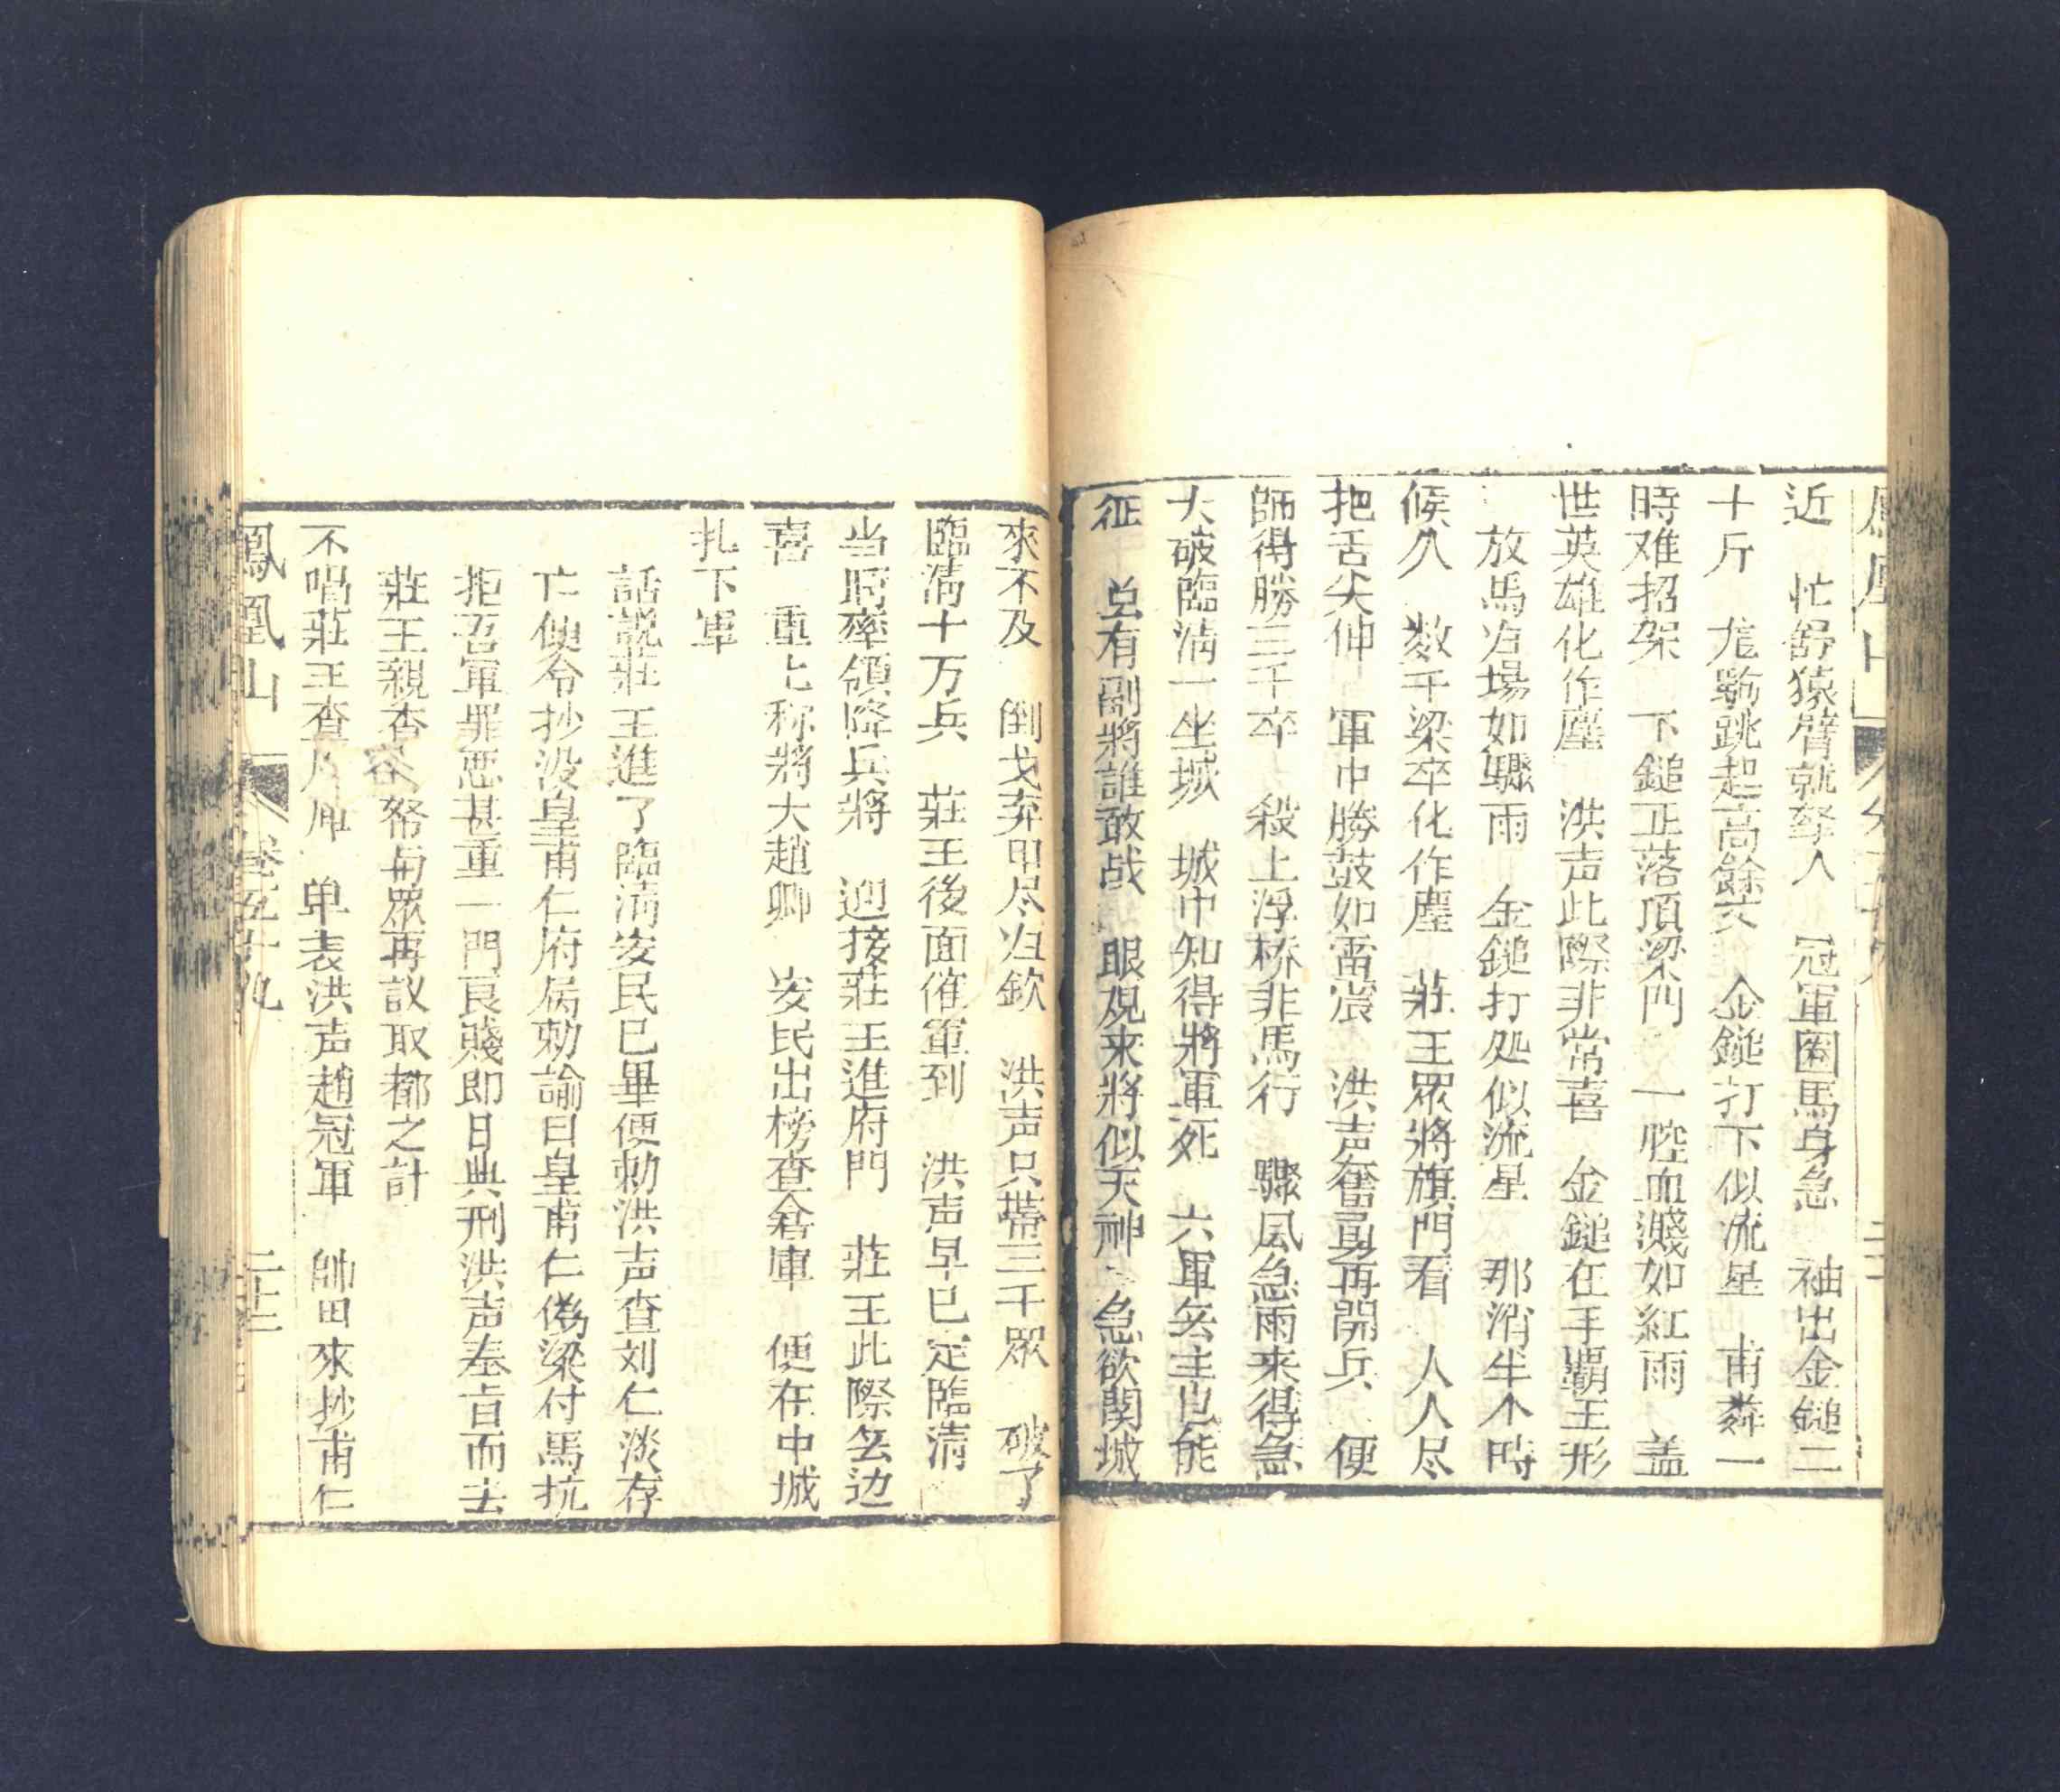 鳳凰山
近 忙舒猿臂就拏人 冠軍圈馬身急 袖出金鎚二
十斤 龙駒跳起高餘丈 金鎚打下似流星 甫粦一
時难招架 下鎚正落頂梁門 一腔血濺如紅雨 盖
世英雄化作塵 洪声此際非常喜 金鎚在手霸王形
放馬冶場如驟雨 金鎚打处似流星 那消半个時
候久 数千梁卒化作塵 莊王眾將旗門看 人人尽
把舌尖伸 軍中勝鼓如雷震 洪声奮勇再開兵 便
師得勝三千卒 殺上浮桥非馬行 驟風急雨来得急
大破臨清一坐城 城中知得將軍死 六軍無主也能
征 总有副將誰敢战 眼覌来將似天神 急欲関城
來不及 倒戈弃甲尽归欽 洪声只帶三千眾 破了
臨清十万兵 莊王後面催軍到 洪声早已定臨清
当時率領降兵將 迎接莊王進府門 莊王此際無边
喜 重七称將大趙卿 安民出榜查倉庫 便在中城
扎下軍
話說莊王進了臨清安民已畢便勅洪声查刘仁淡存
亡便令抄没皇甫仁府属勅諭曰皇甫仁偽梁付馬抗
拒吾軍罪恶甚重一門良賤即日典刑洪声奉旨而去
莊王親查 帑与眾再議取都之計
不唱莊王查 庫 单表洪声趙冠軍 帥田來抄甫仁
鳳凰山 卷五十九 二十二